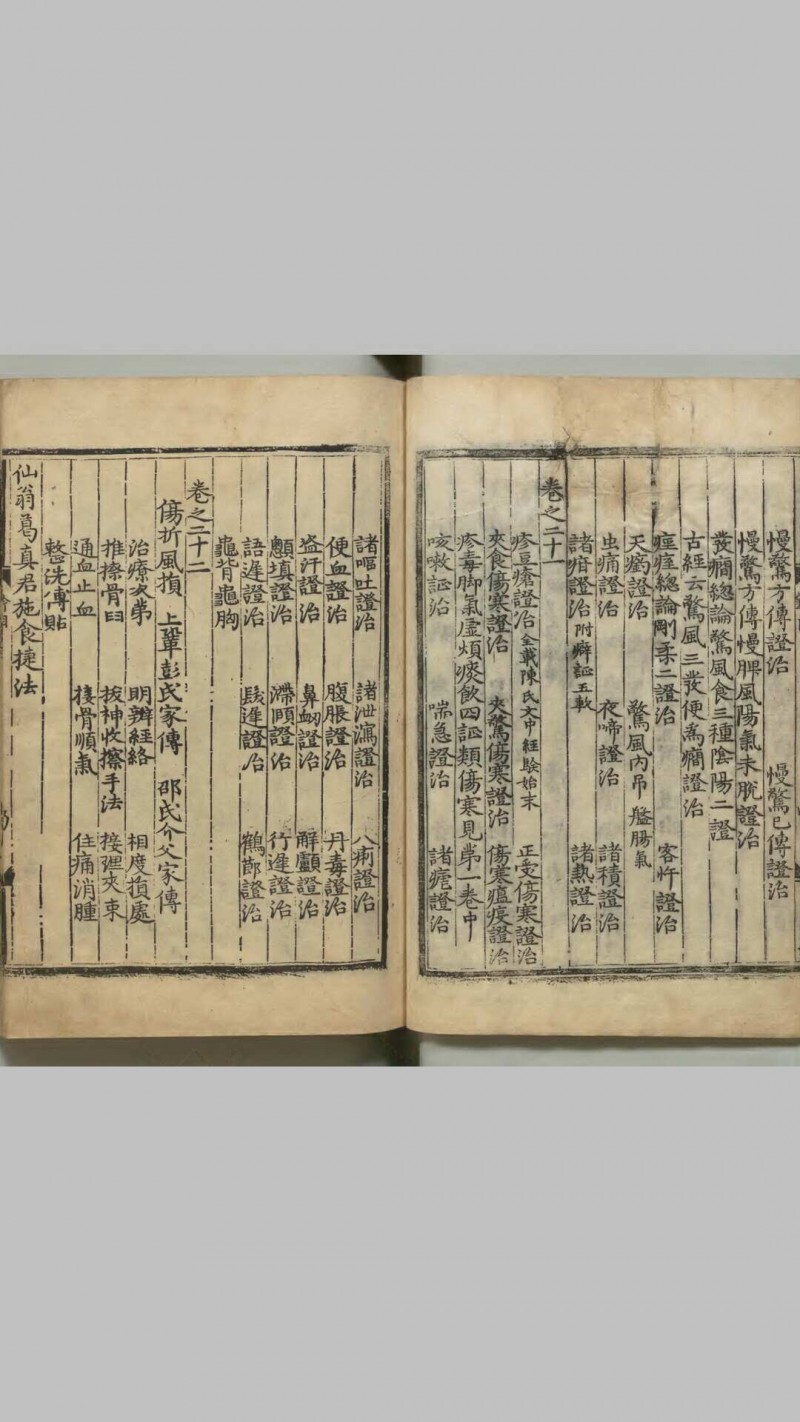 慢驚方傳證治 慢驚已傳證治
慢驚方傳慢脾風陽氣未脫證治
發癇總論驚風食三種陰陽二證
古經云驚風三發便爲癇證治
痙痓總論剛柔二證治 客忤證治
天癇證治 驚風內吊 盤腸氣
虫痛證治 夜啼證治 諸積證治
諸疳證治附癖証五軟 諸熱證治
卷之二十一
疹豆瘡證治全載陳氏文中經驗始末 正受傷寒證治
夾食傷寒證治 夾驚傷寒證治 傷寒瘟疫證治
疹毒脚氣虛煩痰飮四証類傷寒見第一卷中
咳嗽証治 喘急證治 諸瘧證治
諸嘔吐證治 諸泄瀉證治 八痢證治
便血證治 腹脹證治 丹毒證治
盗汗證治 鼻衂證治 解顱證治
顖塡證治 滯頤證治 行遲證治
語遲證治 髮遲證治 鶴節證治
龜背龜胸
卷之二十二
傷折風損 上鞏彭氏家傳 邵氏介父家傳
治療次第 明辨経絡 相度損處
推擦骨臼 拔神收擦手法 接理夾束
通血止血 接骨順氣 住痛消腫
整洗傅貼
仙翁葛真君施食捷法